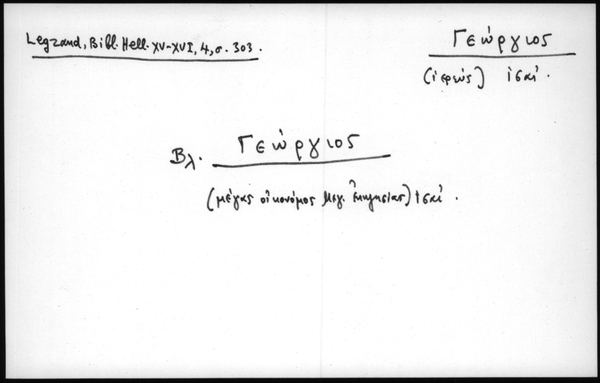 Legrand, Bibl. Hell. XV-XVI, 4, σ. 303.
Γεώργιος
(ἱερεύς) ιςαι΄.
Βλ. Γεώργιος
(μέγας οἰκονόμος Μεγ. Ἐκκλησίας) ιςαι΄.